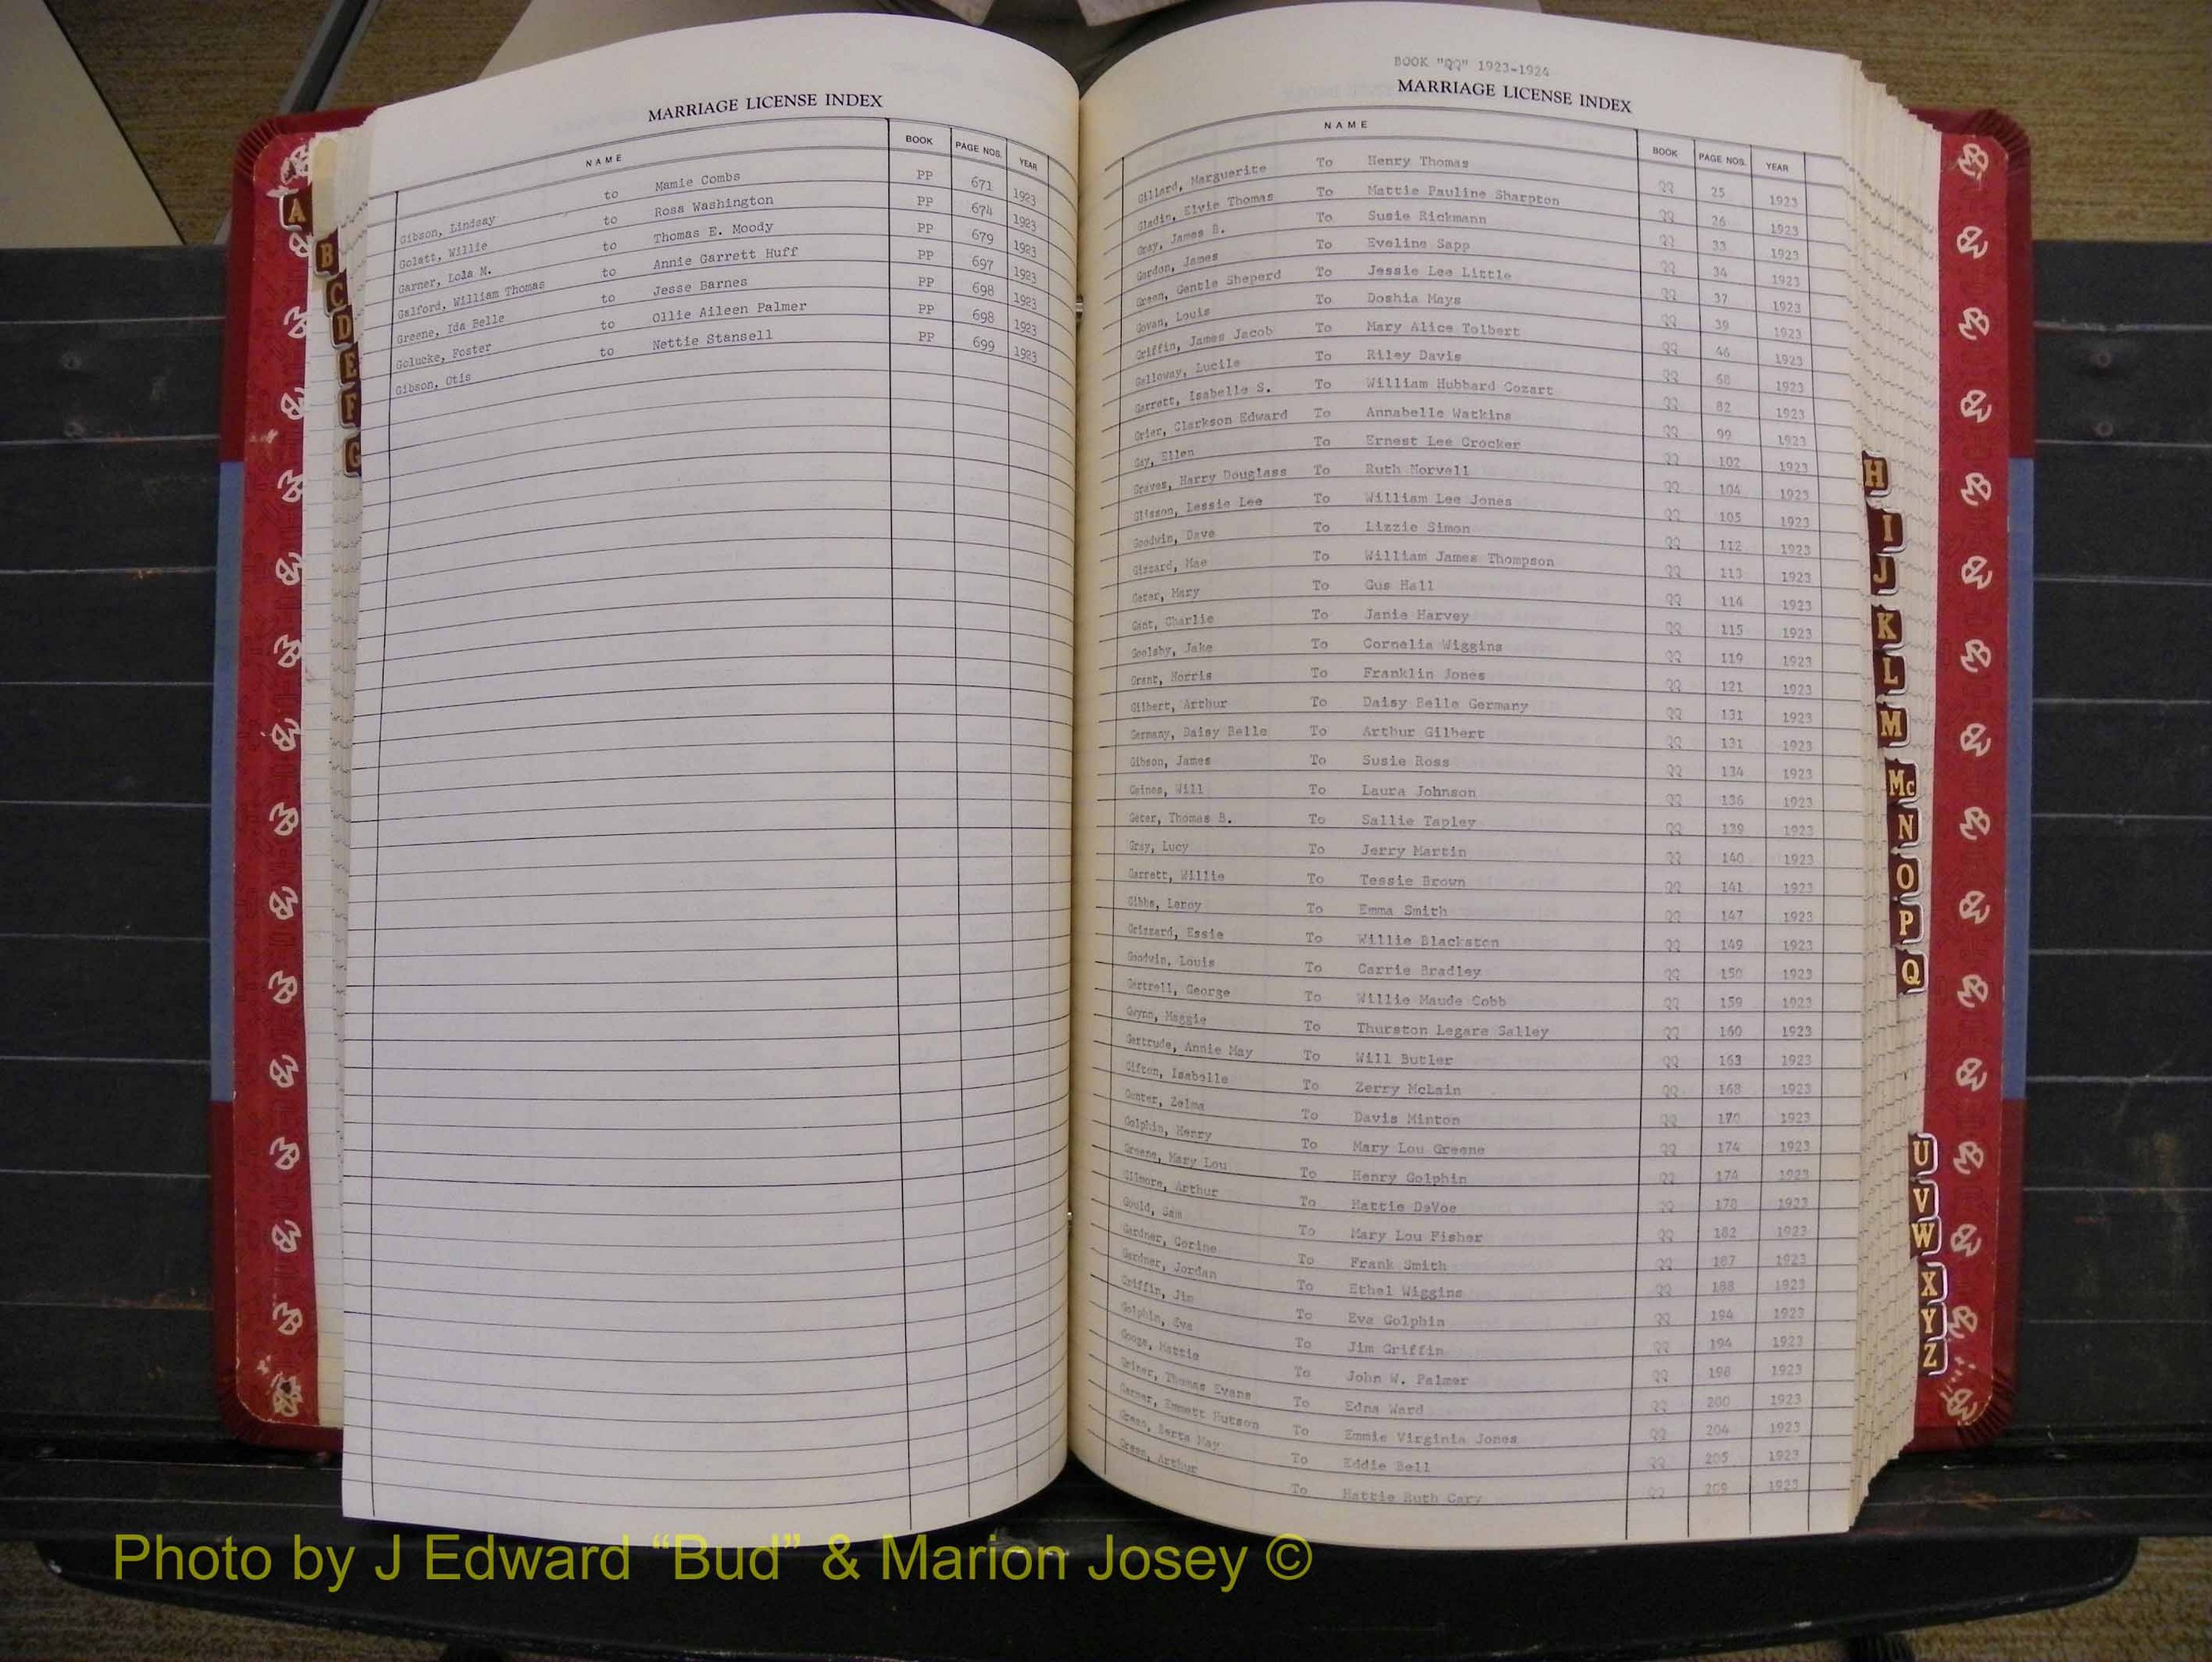 MARRIAGE LICENSE INDEX
NAME BOOK PAGE NOS. YEAR
Gibson, Lindsay to Mamie Combs PP 671 1923
Golatt, Willie to Rosa Washington PP 674 1923
Garner, Lola M. to Thomas E. Moody PP 679 1923
Galford, William Thomas to Annie Garrett Huff PP 697 1923
Greene, Ida Belle to Jesse Barnes PP 698 1923
Golucke, Foster to Ollie Aileen Palmer PP 698 1923
Gibson, Otis to Nettie Stansell PP 699 1923
A
B
C
D
E
F
G
BOOK "QQ" 1923-1924
MARRIAGE LICENSE INDEX
NAME BOOK PAGE NOS. YEAR
Gillard, Marguerite To Henry Thomas QQ 25 1923
Gladin, Elvie Thomas To Mattie Pauline Sharpton QQ 26 1923
Gray, James B. To Susie Rickmann QQ 33 1923
Gordon, James To Eveline Sapp QQ 34 1923
Green, Gentle Sheperd To Jessie Lee Little QQ 37 1923
Govan, Louis To Doshia Mays QQ 39 1923
Griffin, James Jacob To Mary Alice Tolbert QQ 46 1923
Galloway, Lucile To Riley Davis QQ 68 1923
Garrett, Isabelle S. To William Hubbard Cozart QQ 82 1923
Grier, Clarkson Edward To Annabelle Watkins QQ 99 1923
Gay, Ellen To Ernest Lee Crocker QQ 102 1923
Graves, Harry Douglass To Ruth Norvell QQ 104 1923
Glisson, Lessie Lee To William Lee Jones QQ 105 1923
Goodwin, Dave To Lizzie Simon QQ 112 1923
Gizzard, Mae To William James Thompson QQ 113 1923
Geter, Mary To Gus Hall QQ 114 1923
Gant, Charlie To Janie Harvey QQ 115 1923
Goolsby, Jake To Cornelia Wiggins QQ 119 1923
Grant, Norris To Franklin Jones QQ 121 1923
Gilbert, Arthur To Daisy Belle Germany QQ 131 1923
Germany, Daisy Belle To Arthur Gilbert QQ 131 1923
Gibson, James To Susie Ross QQ 134 1923
Gaines, Will To Laura Johnson QQ 136 1923
Geter, Thomas B. To Sallie Tapley QQ 139 1923
Gray, Lucy To Jerry Martin QQ 140 1923
Garrett, Willie To Tessie Brown QQ 141 1923
Gibbs, Leroy To Emma Smith QQ 147 1923
Grizzard, Essie To Willie Blackston QQ 149 1923
Goodwin, Louis To Carrie Bradley QQ 150 1923
Gartrell, George To Willie Maude Cobb QQ 159 1923
Gwynn, Maggie To Thurston Legare Salley QQ 160 1923
Gertrude, Annie May To Will Butler QQ 163 1923
Gifton, Isabelle To Zerry McLain QQ 168 1923
Gunter, Zelma To Davis Minton QQ 170 1923
Golphin, Henry To Mary Lou Greene QQ 174 1923
Greene, Mary Lou To Henry Golphin QQ 174 1923
Gilmore, Arthur To Hattie DeVoe QQ 178 1923
Gould, Sam To Mary Lou Fisher QQ 182 1923
Gardner, Corine To Frank Smith QQ 187 1923
Gardner, Jordan To Ethel Wiggins QQ 188 1923
Griffin, Jim To Eva Golphin QQ 194 1923
Golphin, Eva To Jim Griffin QQ 194 1923
Googe, Mattie To John W. Palmer QQ 198 1923
Griner, Thomas Evans To Edna Ward QQ 200 1923
Garner, Emmett Hutson To Emmie Virginia Jones QQ 204 1923
Green, Berta May To Eddie Bell QQ 205 1923
Green, Arthur To Hattie Ruth Cary QQ 209 1923
H
I
J
K
L
M
Mc
N
O
P
Q
U
V
W
X
Y
Z
Photo by J Edward “Bud” & Marion Josey ©